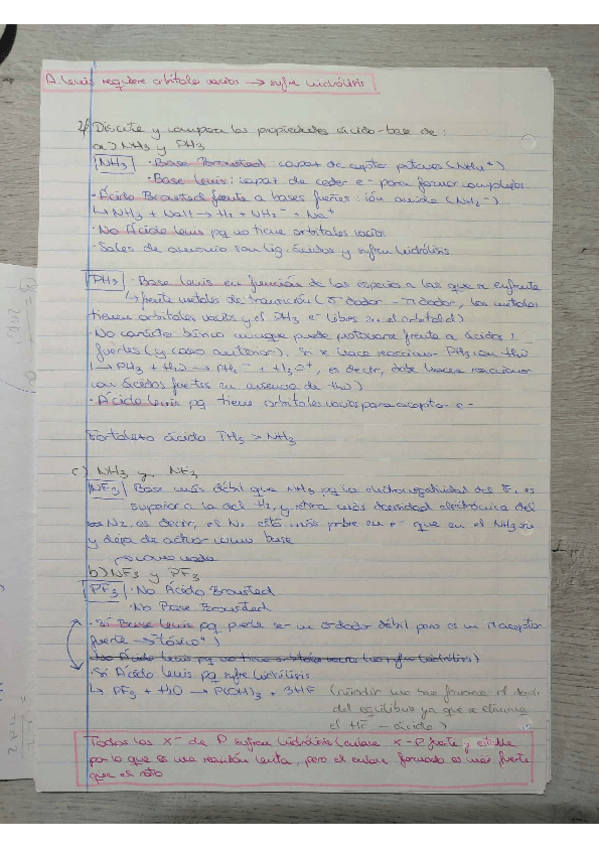 A. Lewis requiere orbitales vacíos → sufre hidrólisis
2/ Discute y compara las propiedades ácido-base de:
a) NH3 y PH3
NH3 · Base Bronsted: capaz de captar protones (NH4+)
· Base Lewis: capaz de ceder e- para formar complejos
· Ácido Bronsted frente a bases fuertes: ión amida (NH2-)
↳ NH3 + NaH → H2 + NH2- + Na+
· No Ácido Lewis pq no tiene orbitales vacíos
· Sales de amonio son lig. ácidos y sufren hidrólisis
PH3 · Base Lewis en función de las especies a las que se enfrente
↳ frente metales de transición (σ dador - π dador, los metales
tienen orbitales vacíos y el PH3 e- libres en el orbital d)
· No carácter básico aunque puede protonarse frente a ácidos
fuertes (y caso anterior). Si se hace reaccionar PH3 con H2O
→ PH3 + H2O → PH2- + H3O+, es decir, debe hacerse reaccionar
con ácidos fuertes en ausencia de H2O)
· Ácido Lewis pq tiene orbitales vacíos para aceptar e-
Fortaleza ácido PH3 > NH3
c) NH3 y NF3
NF3 Base más débil que NH3, pq la electronegatividad del F, es
superior a la del H2, y retira más densidad electrónica del
N2, es decir, el N, está más pobre en e- que en el NH3
y deja de actuar como base
b) NF3 y PF3
PF3 · No Ácido Bronsted
· No Base Bronsted
· Sí Base Lewis pq puede ser un σ dador débil pero es un π aceptor
fuerte → "Tóxico"
No Ácido Lewis pq no tiene orbitales vacíos (no sufre hidrólisis)
· Sí Ácido Lewis pq sufre hidrólisis
↳ PF3 + H2O → P(OH)3 + 3HF (añadir una base favorece el
del equilibrio ya que se elimina
el HF - ácido)
Todos los X- de P sufren hidrólisis (enlace X-P fuerte y estable
por lo que es una reacción lenta, pero el enlace formado es más fuerte
que el roto